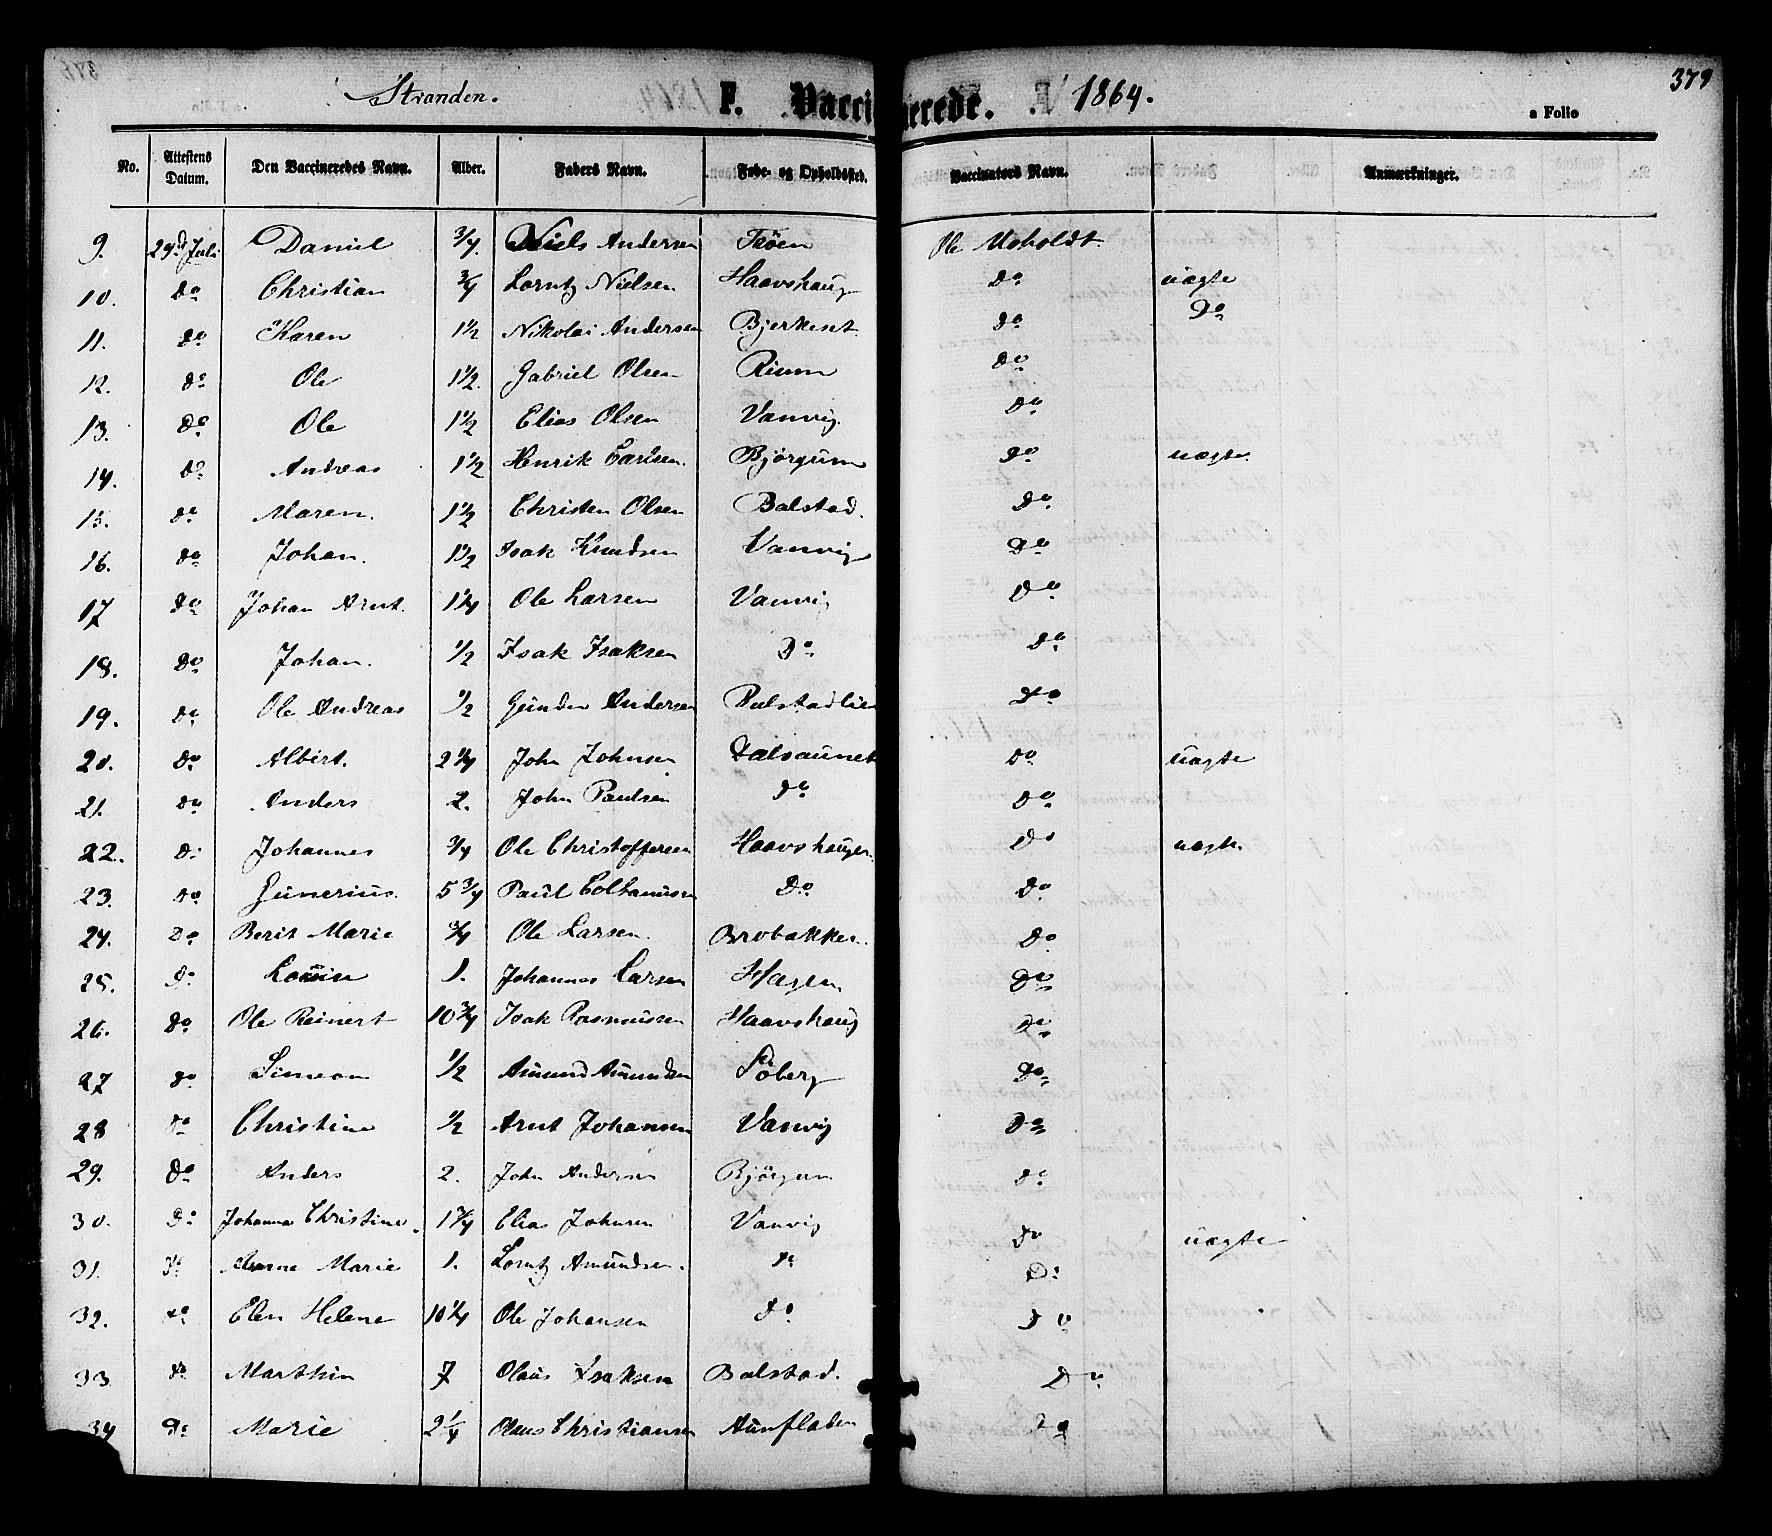 Stranden. F. Vaccinerede. 1864. 379
a Folio
No. Attestens Datum. Den Vaccineredes Navn. Alder. Faders Navn. Føde- og Opholdssted. Vaccinators Navn. Anmærkninger.
9. 29d Juli Daniel 3/4. Niels Andersen Tröen Ole Moholdt
10. do Christian 3/4 Lorntz Nielsen Haavshaug do uægte
11. do Karen 1 1/2 Nikolai Andersen Bjerkeset do Do
12. do Ole 1 1/2. Gabriel Olsen do
13. do Ole 1 1/2 Elias Olsen Vanvig. do
14. do Andreas 1 1/2 Henrik Carlsen. Björgum do uægte.
15. do Maren. 1 1/2 Christen Olsen Balstad. do
16. do Johan. 1 1/2 Isak Knudsen Vanvig Do
17 do Johan Arnt. 1 1/4 Ole Larsen Vanvig Do
18. do Johan. 1/2 Isak Isaksen Do do
19. do Ole Andreas 1/2 Gunder Andersen Balstadlien do
20. do Albert. 2 1/4 John Johnsen Dalsaunet do uægte
21. do Anders 2. John Paulsen do do
22. do Johannes 3/4 Ole Christoffersen Haavshaugen Do uægte.
23. do Gunerius. 5 3/4 Paul Do do
24. Do Berit Marie 3/4 Ole Larsen. Brobakken. do
25. do Lovise 1. Johannes Larsen Hagen Do
26. do Ole Reinert 10 3/4 Isak Rasmussen Haavshaug do
27 do Simeon 1/2 Amund Amundsen Söberg Do
28 do Christine 1/2 Arnt Johansen Vanvig Do
29. do Anders 2. John Andersen Björgum do
30. Do Johanna Christine. 1 3/4 Elias Johnsen Vanvig do uægte
31. do Marie 1. Lorntz Amundsen. do Do
32. do Elen Helene 10 1/4 Ole Johansen do do
33. do Marthin 7 Olaus Isaksen Balstad. Do
34 Do Marie 2 1/4 Olaus Christiansen Aunfladen do